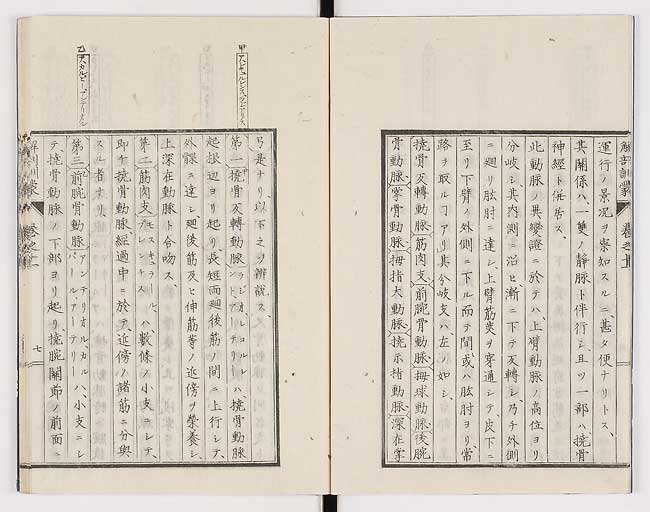 運行ノ景況ヲ察知スルニ甚タ便ナリトス、
其關係ハ一雙ノ靜脈ト伴行シ且ツ一部ハ撓骨
神經ト併居ス、
此動脈ノ異變證ニ於テハ、上臂動脈ノ高位ヨリ
分岐シ其内側ニ沿ヒ漸ニ下テ反轉シ乃チ外側
ニ廻リ肱肘ニ達シ、上臂筋莢ヲ穿通シテ、皮下ニ
至リ下臂ノ外側ニ下ル而テ間或ハ肱肘ヨリ常
路ヲ取ルヿアリ其分岐支ハ左ノ如シ、
撓骨反轉動脈、筋肉支、前腕骨動脈、拇球動脈、後腕
骨動脈、掌骨動脈、拇指大動脈、撓示指動脈、深在掌
解剖訓蒙
甲
乙
弓是ナリ、以下之ヲ辨説ス、
第一撓骨反轉動脈ラジオレコルレントアーテリーハ撓骨動脈
起根辺ヨリ起リ、長短両廻後筋ノ間ニ上行シテ、
外髁ニ達シ、廻後筋及ヒ伸筋等ノ近傍ヲ榮養シ、
上深在動脈ト合吻ス、
第二筋肉支ハ數條ノ小支ニシテ、
即チ撓骨動脈、經過中ニ於テ、近傍ノ諸筋ニ分與
スル者ナリ
第三前腕骨動脈アンテリオルカルパールアーテリーハ、小支ニシ
テ、撓骨動脈ノ下部ヨリ起リ、撓腕關節ノ前面ニ
七